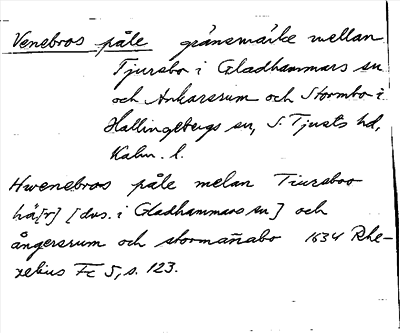 Venebros påle gränsmärke mellan
Tjursbo i Gladhammars sn
och Ankarsrum och Stormbo i
Hallingebergs sn, S. Tjusts hd,
Kalm. l.
Hwenebros påle melan Tiursboo
hä[r] [dvs. i Gladhammars sn] och
ångersrum och stormañabo 1634 Rhe-
zelius Fc 5, s. 123.